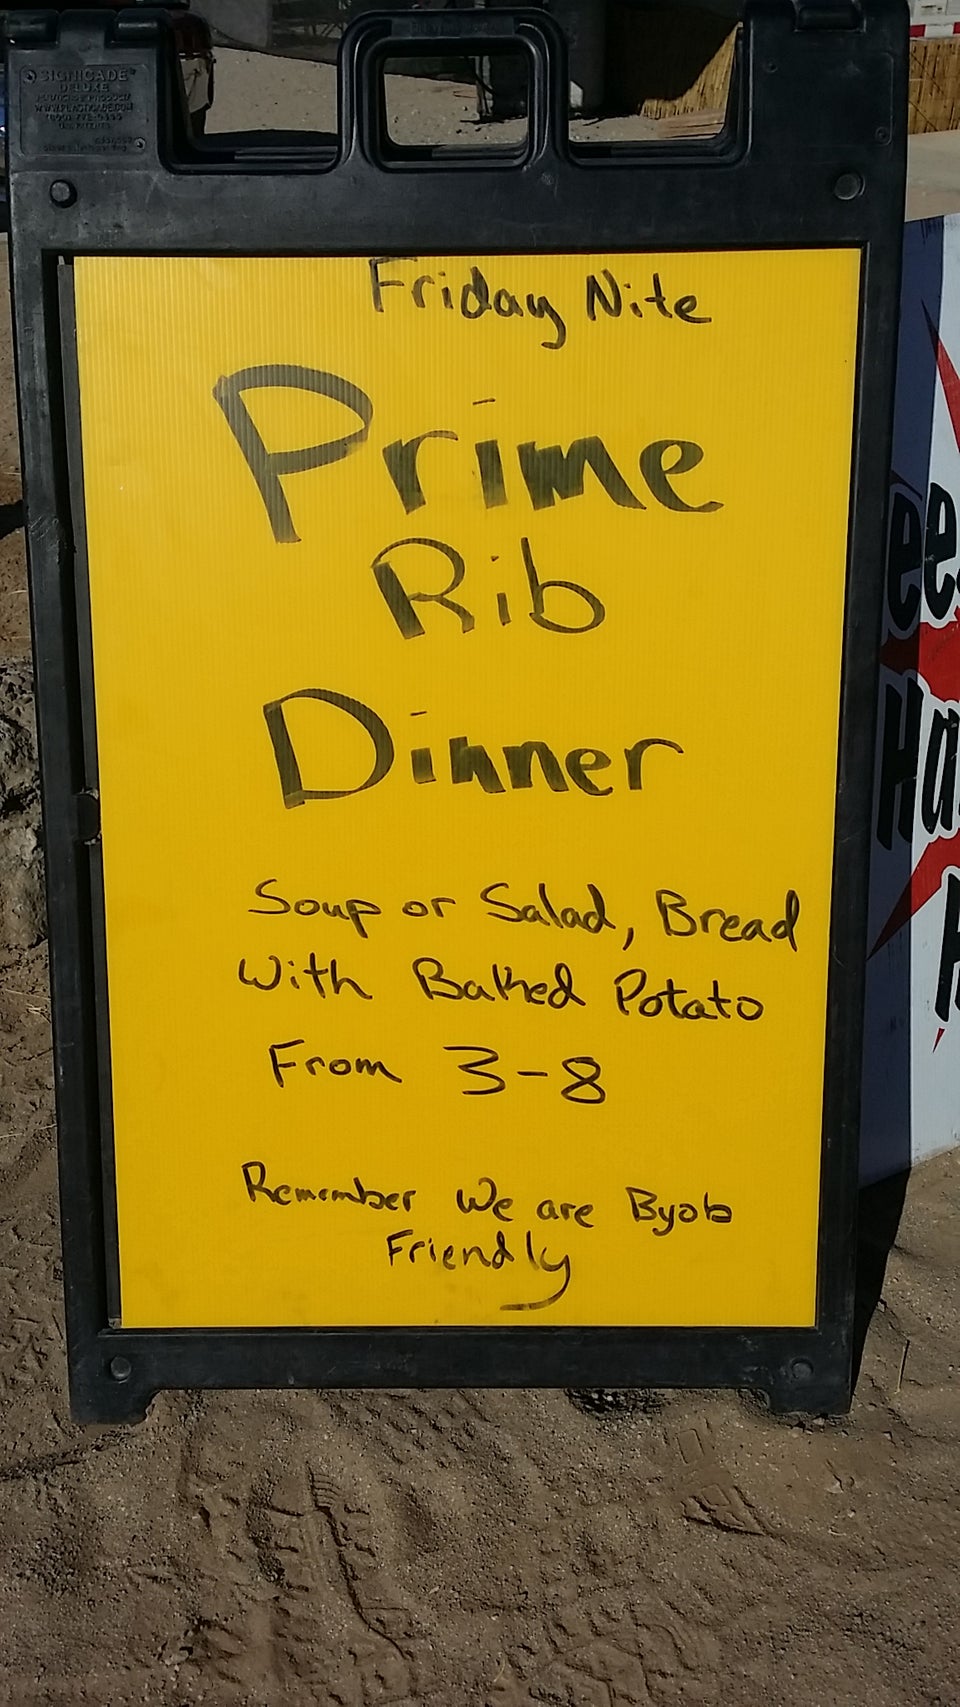 SIGNICADE
DELUXE
WWW.PLASTICADE.COM
Friday Nite
Prime
Rib
Dinner
Soup or Salad, Bread
With Baked Potato
From 3-8
Remember We are Byob
Friendly